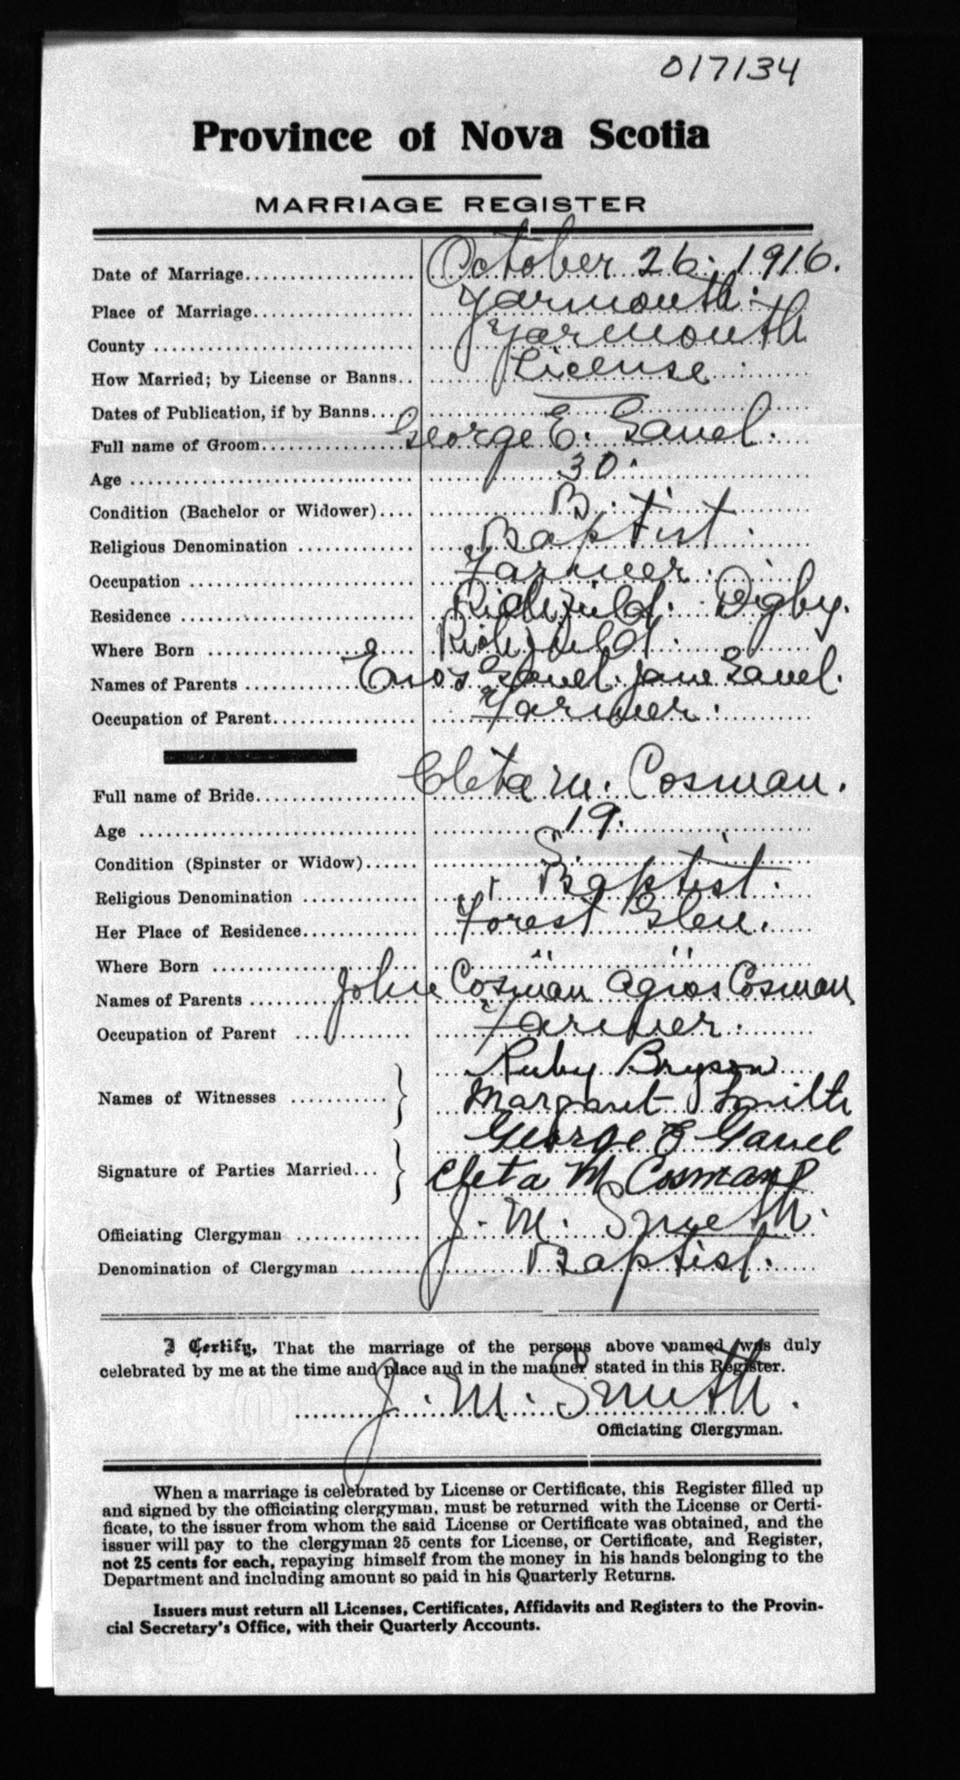 017134
Province of Nova Scotia
MARRIAGE REGISTER
Date of Marriage October 26. 1916.
Place of Marriage Yarmouth.
County Yarmouth
How Married; by License or Banns License
Dates of Publication, if by Banns
Full name of Groom George E. Gavel.
Age 30.
Condition (Bachelor or Widower) B.
Religious Denomination Baptist.
Occupation Farmer.
Residence Richfield. Digby.
Where Born Richfield.
Names of Parents Enos Gavel. Jane Gavel.
Occupation of Parent Farmer.
Full name of Bride Cleta M. Cosman.
Age 19.
Condition (Spinster or Widow) S.
Religious Denomination Baptist.
Her Place of Residence Forest Glen.
Where Born " "
Names of Parents John Cosman Cosman
Occupation of Parent Farmer.
Names of Witnesses } Ruby Bryson
Margaret Smith
Signature of Parties Married } George E Gavel
Cleta M Cosman
Officiating Clergyman J. M. Smith.
Denomination of Clergyman Baptist.
I Certify, That the marriage of the persons above named was duly
celebrated by me at the time and place and in the manner stated in this Register.
J. M. Smith.
Officiating Clergyman.
When a marriage is celebrated by License or Certificate, this Register filled up
and signed by the officiating clergyman, must be returned with the License or Certi-
ficate, to the issuer from whom the said License or Certificate was obtained, and the
issuer will pay to the clergyman 25 cents for License, or Certificate, and Register,
not 25 cents for each, repaying himself from the money in his hands belonging to the
Department and including amount so paid in his Quarterly Returns.
Issuers must return all Licenses, Certificates, Affidavits and Registers to the Provin-
cial Secretary's Office, with their Quarterly Accounts.